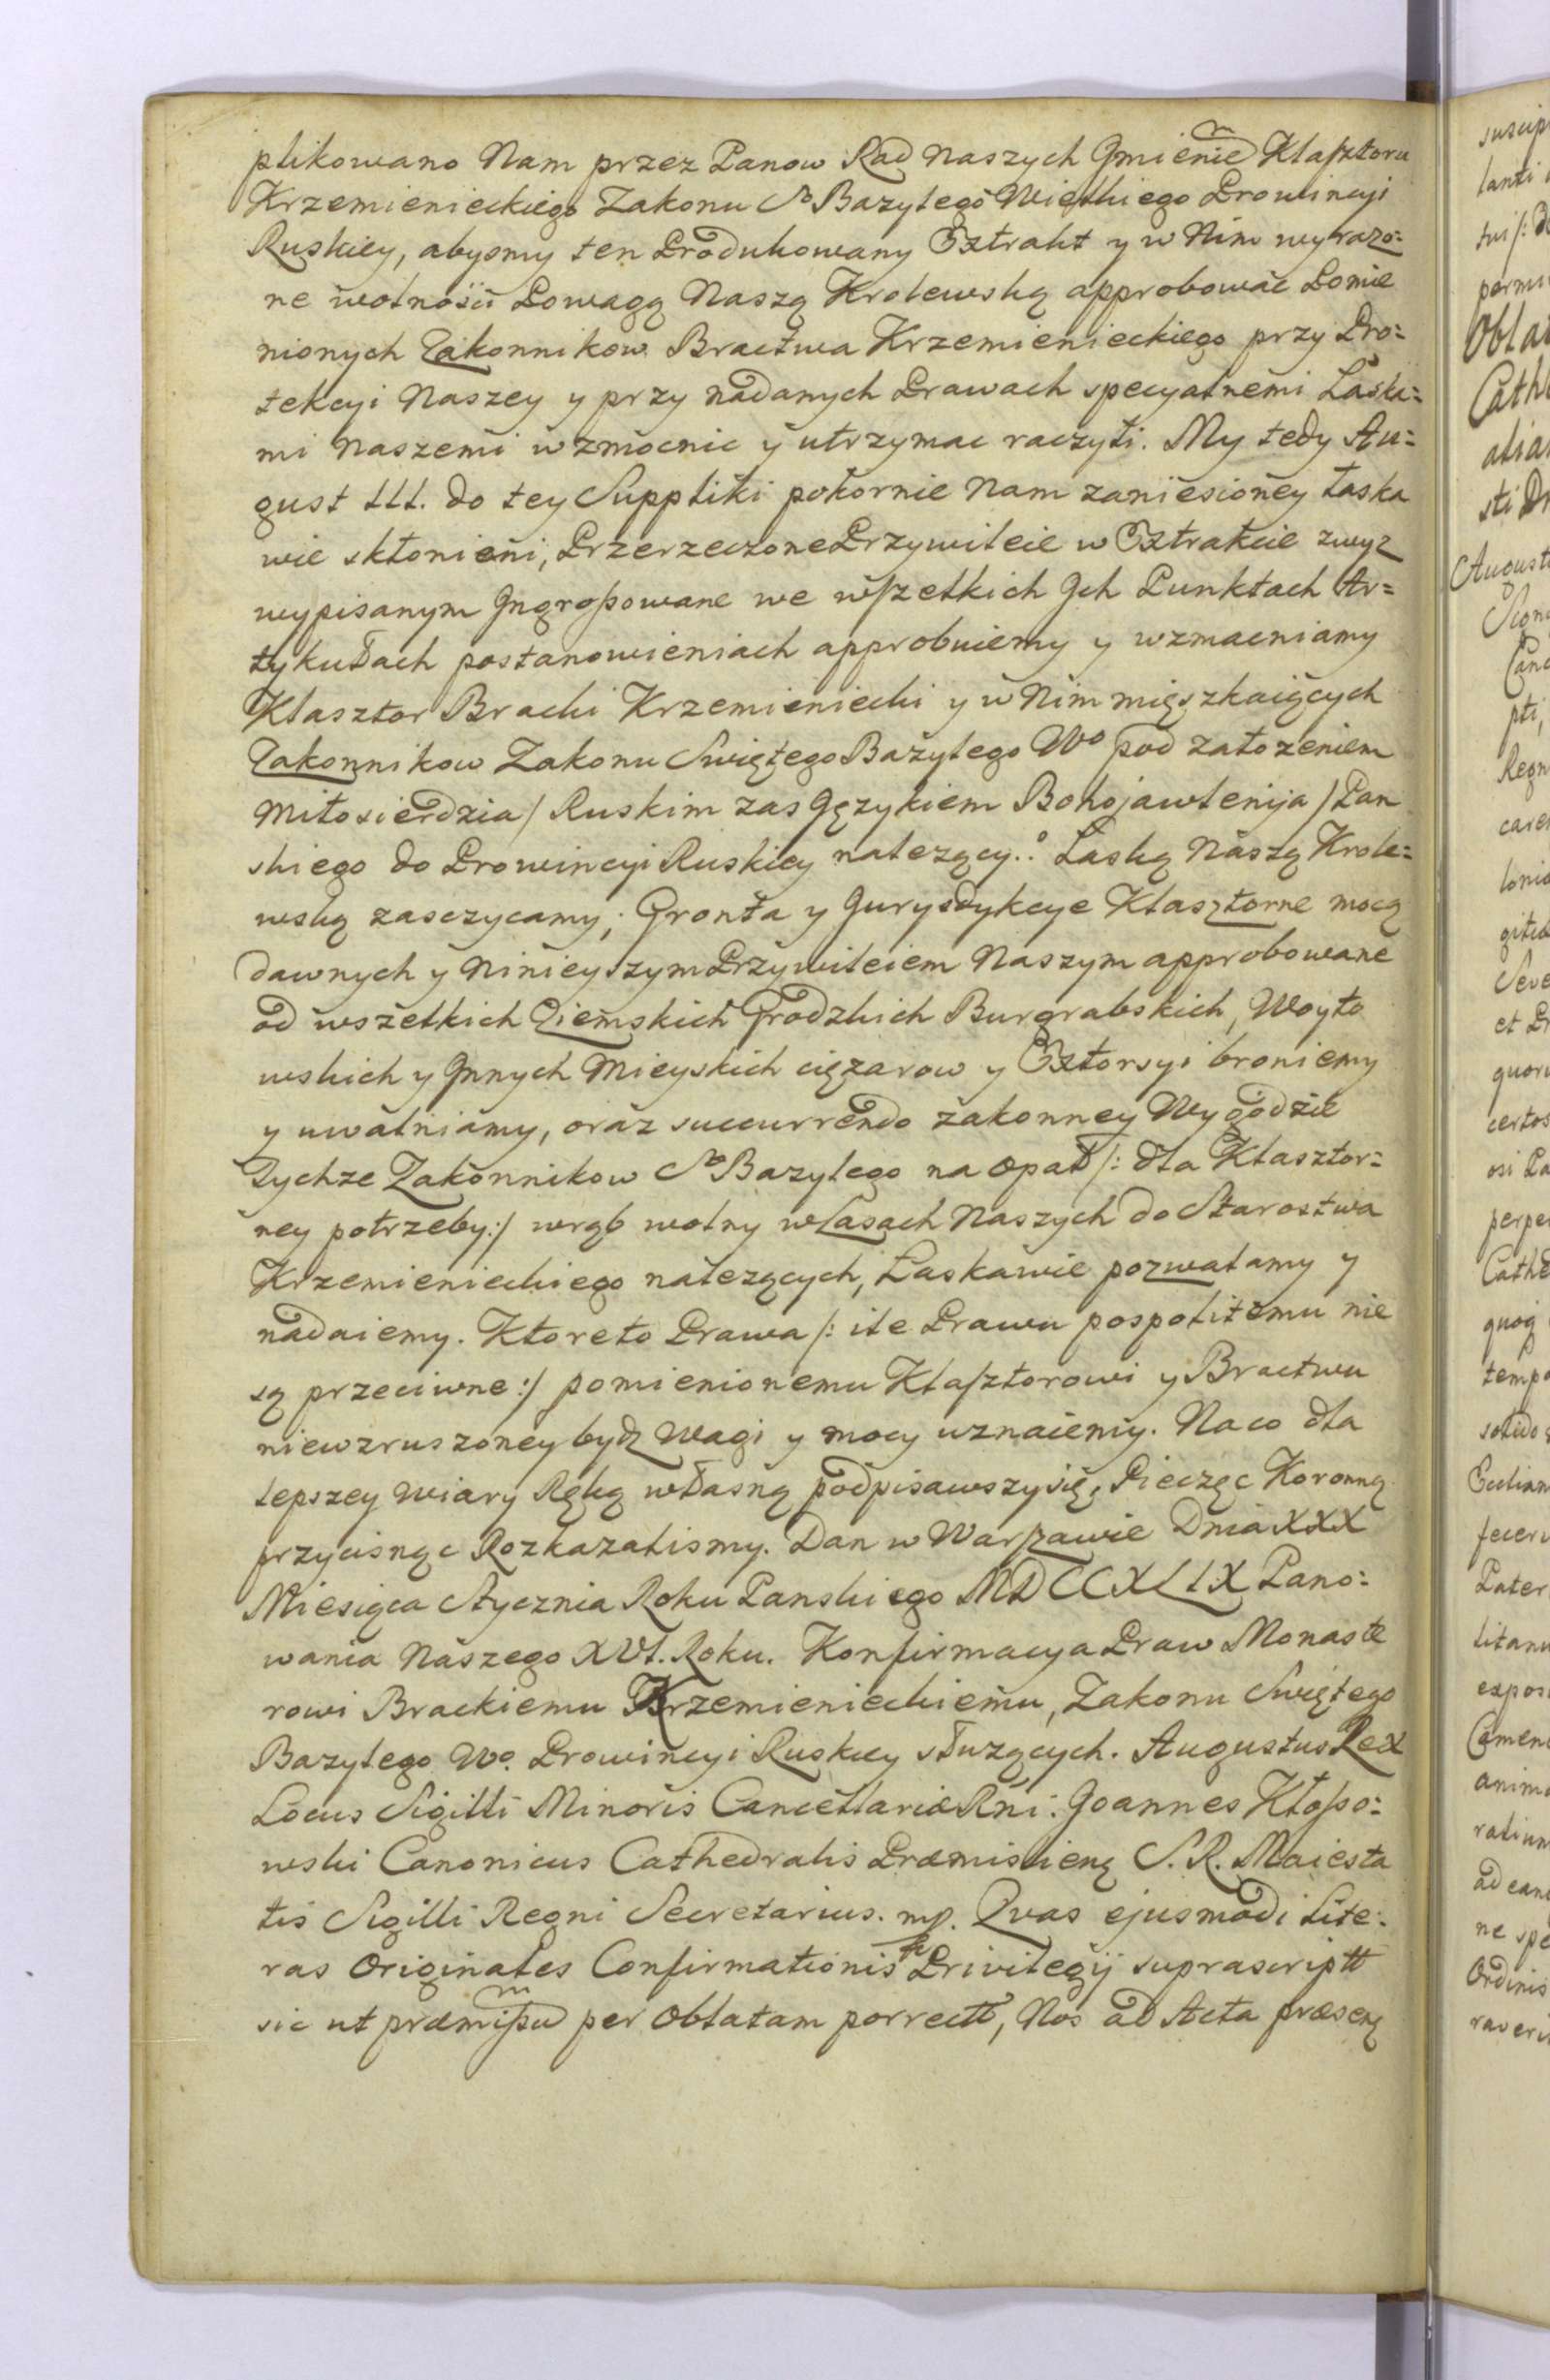 plikowano Nam przez Panow Rad Naszych Jmieniem Klasztoru
Krzemienieckiego Zakonu So Bazylego Wielkiego Prowincyi
Ruskiey, abysmy ten Produkowany Extrakt y w Nim wyrazo=
ne wolnośći Powagą Naszą Krolewską approbować Pomie
nionych Zakonnikow Bractwa Krzemienieckiego przy Pro=
tekcyi Naszey y przy nadanych Prawach specyalnemi Łaska=
mi Naszemi wzmocnic y utrzymac raczyli. My tedy Au=
gust III. do tey Suppliki pokornie Nam zaniesioney łaska
wie skłonieni, Przerzeczone Przywileie w Extrakcie zwyz
wypisanym Jngrossowane we wszelkich Jch Punktach Ar=
tykułach postanowieniach approbuiemy y wzmacniamy
Klasztor Bracki Krzemieniecki y w Nim mięszkaiących
Zakonnikow Zakonu Swiętego Bazylego Wo pod załozeniem
Miłosierdzia / Ruskim zas Językiem Bohojawlenija / Pan
skiego do Prowincyi Ruskiey nalezący. Łaską Naszą Krole=
wską zasczycamy; Gronta y Jurysdykcye Klasztorne mocą
dawnych y Ninieyszym Przywileiem Naszym approbowane
od wszelkich Ziemskich Grodzkich Burgrabskich, Woyto
wskich y Jnnych Mieyskich cięzarow y Extorsyi broniemy
y uwalniamy, oraz succurrendo zakonney Wygodzie
Tychze Zakonnikow So Bazylego na opał /: dla Klasztor=
ney potrzeby :/ wrąb wolny w Lasach Naszych do Starostwa
Krzemienieckiego nalezących, Łaskawie pozwalamy y
nadaiemy. Ktoreto Prawa /: ile Prawu pospolitemu nie
są przeciwne :/ pomienionemu Klasztorowi y Bractwu
niewzruszoney bydz Wagi y mocy uznaiemy. Na co dla
lepszey Wiary Ręką własną podpisawszy się, Pieczęc Koronną
przycisnąc Rozkazalismy. Dan w Warszawie Dnia XXX
Miesiąca Stycznia Roku Panskiego MDCCXLIX Pano=
wania Naszego XVI. Roku. Konfirmacya Praw Monaste
rowi Brackiemu Krzemienieckiemu, Zakonu Swiętego
Bazylego Wo. Prowincyi Ruskiey słuzących. Augustus Rex
Locus Sigilli Minoris Cancellariæ Rni. Joannes Kłosso=
wski Canonicus Cathedralis Præmislienę S. R. Maiesta
tis Sigilli Regni Secretarius. mp. Qvas ejusmodi Lite=
ras Originales Confirmationis Privilegij suprascriptt
sic ut præmissum per Oblatam porrectt, Nos ad Acta præsenę
suscip
lanti
perm
Obla
Cath
alia
sti
August
Regn
care
loni
et
quor
certos
perpe
Cathe
quoq
temp
solid
fecer
Pater
litan
expos
Camen
anim
ratiun
ad eand
ne spe
Ordinis
raveri